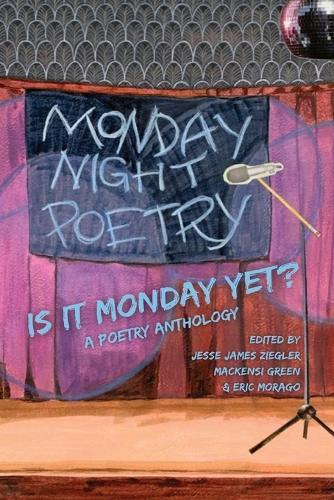 MONDAY
NIGHT
POETRY
IS IT MONDAY YET?
A POETRY ANTHOLOGY
EDITED BY
JESSE JAMES ZIEGLER
MACKENSI GREEN
& ERIC MORAGO